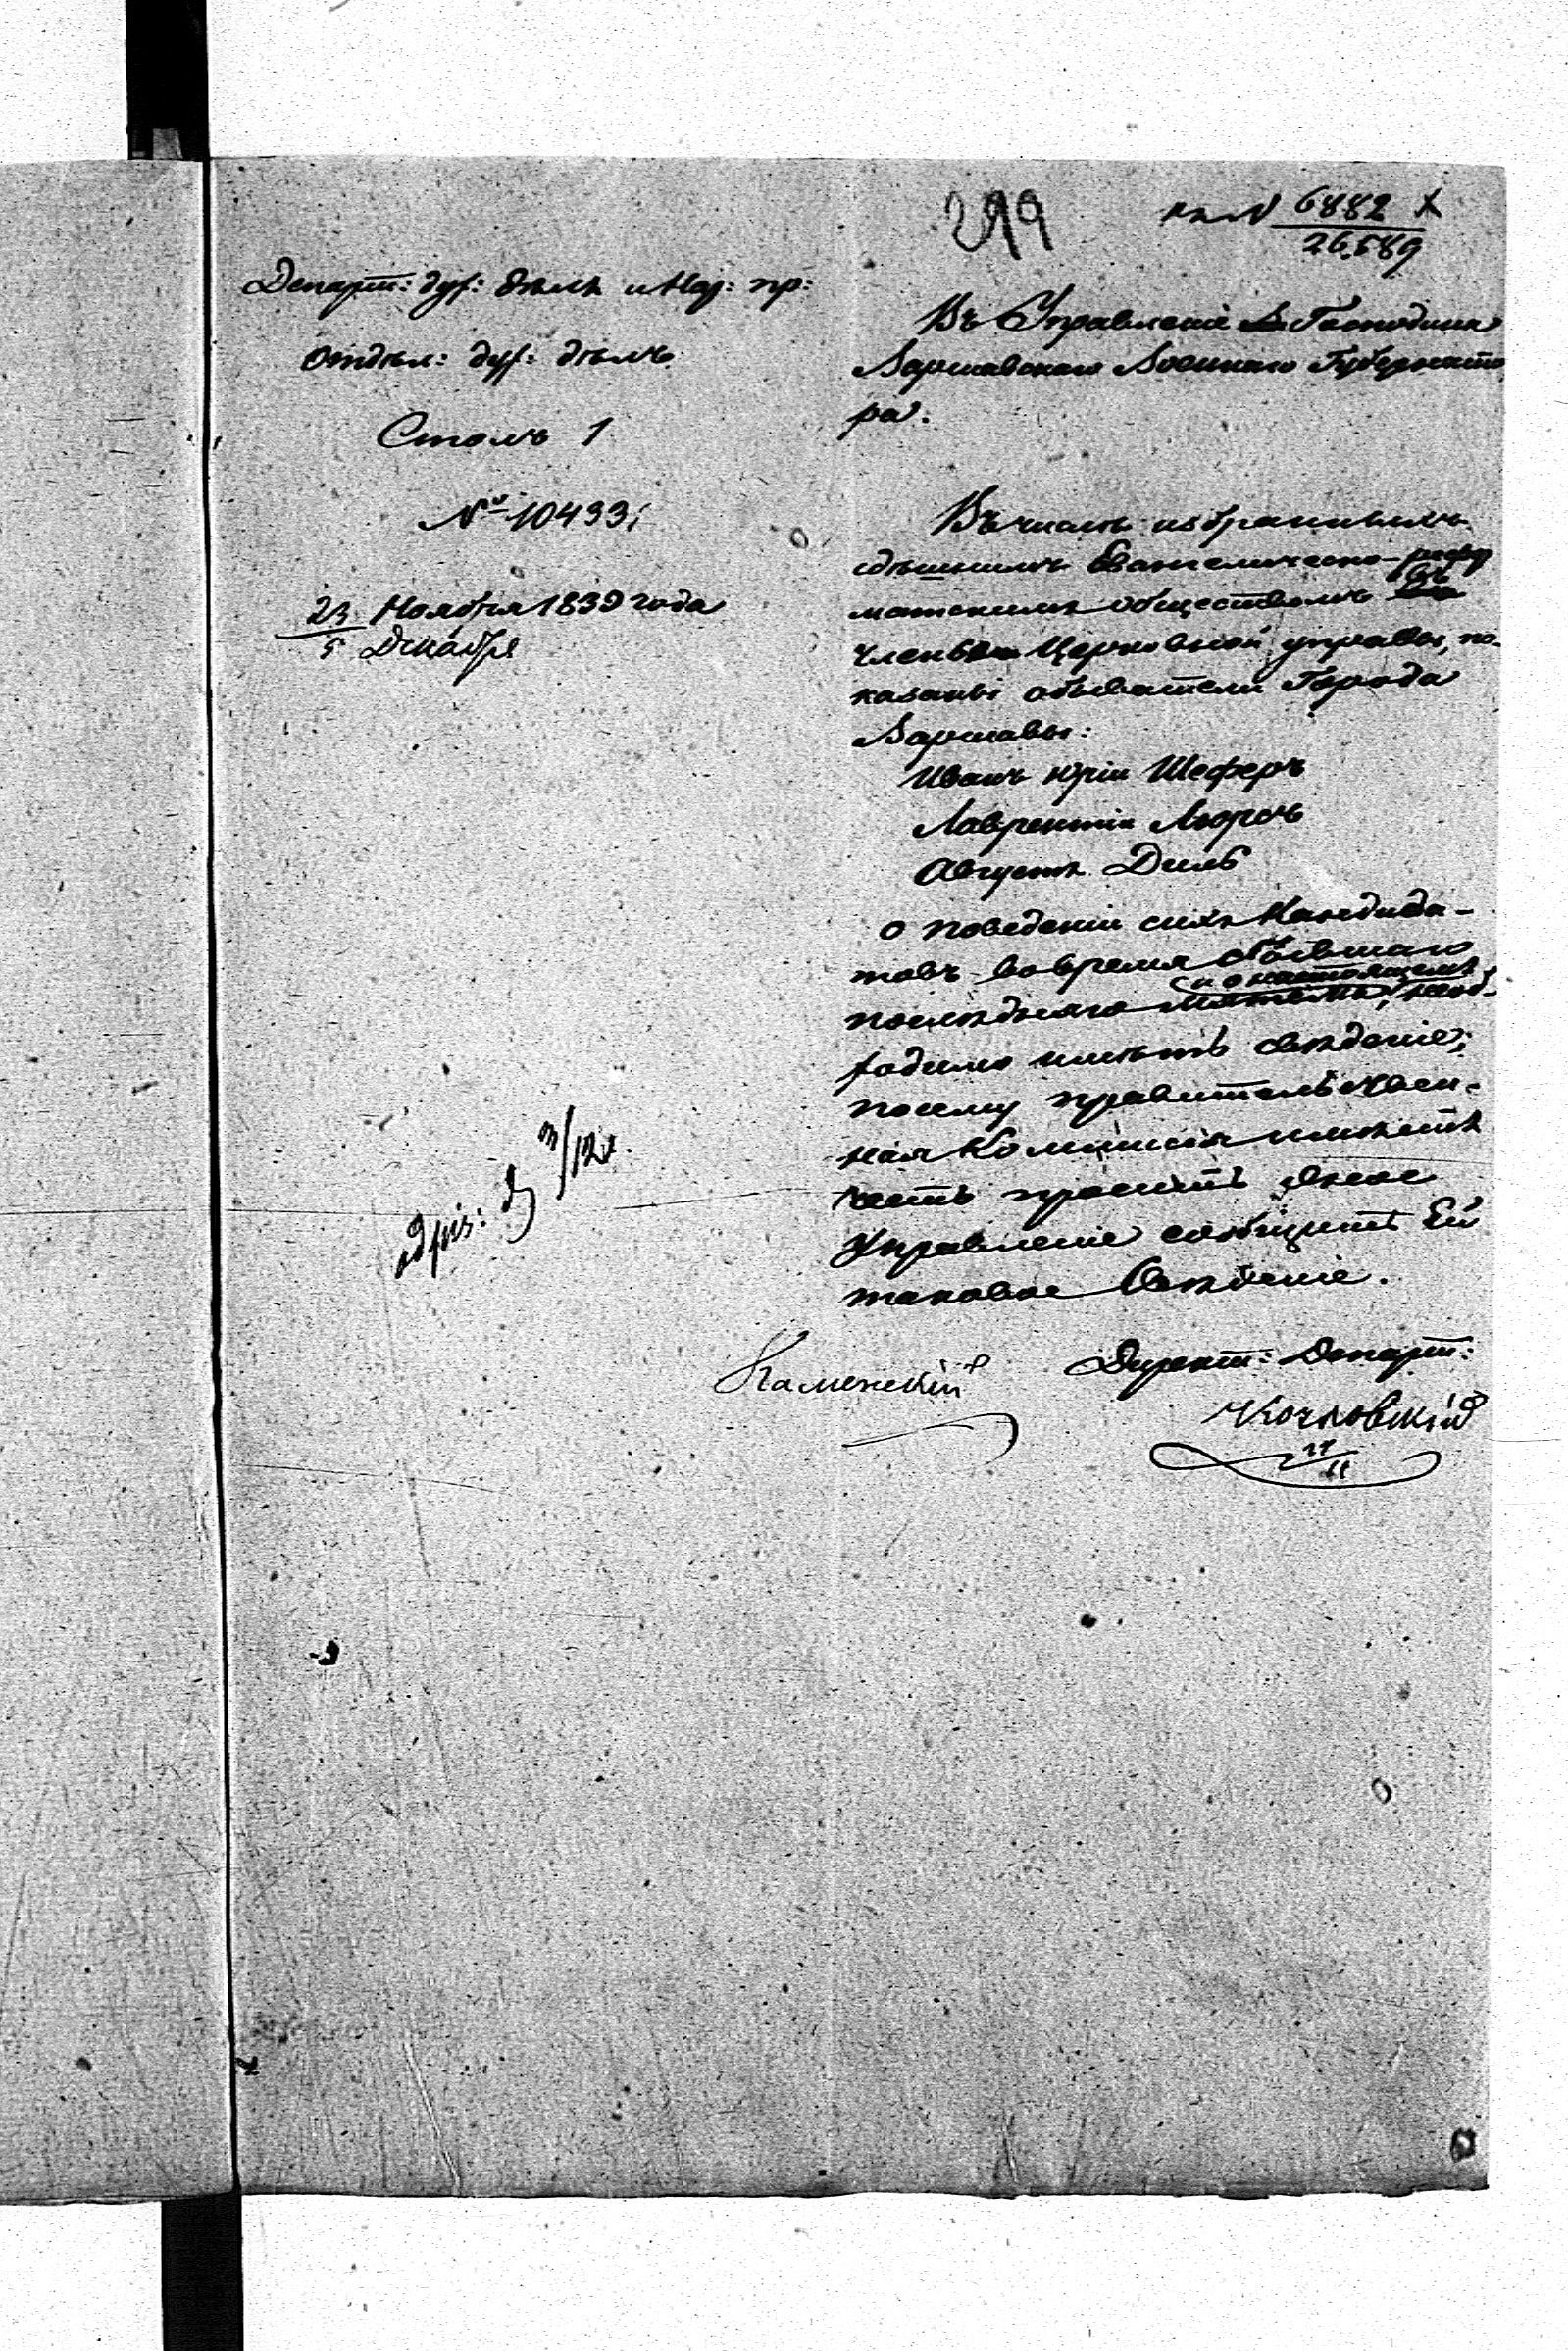 299
къ N 6882 X
26,589
Департ: дух: дѣлъ и Нар: пр:
Отдѣл: дух: дѣлъ
Столъ 1
№ 10433
23 Ноября 1839 года
5 Декабря
Въ Управленіе Господина
Варшавскаго Военнаго Губернато
ра.
Въ числѣ избранныхъ
здѣшнимъ Евангелическо-рефор
матскимъ обществомъ въ
члены Церковной управы, по-
казаны обыватели Города
Варшавы:
Иванъ Юрій Шеферъ
Лаврентій Люрсъ
Августъ Диль
О поведеніи сихъ Кандида-
товъ во время бывшаго
и о настоящемъ
послѣдняго мятежа, необ-
ходимо имѣть свѣденіе;
посему Правительствен-
ная Коммисія имѣетъ
честь просить оное
Управленіе сообщить Ей
таковое Свѣденіе.
Директ: Департ:
Каменскій
11